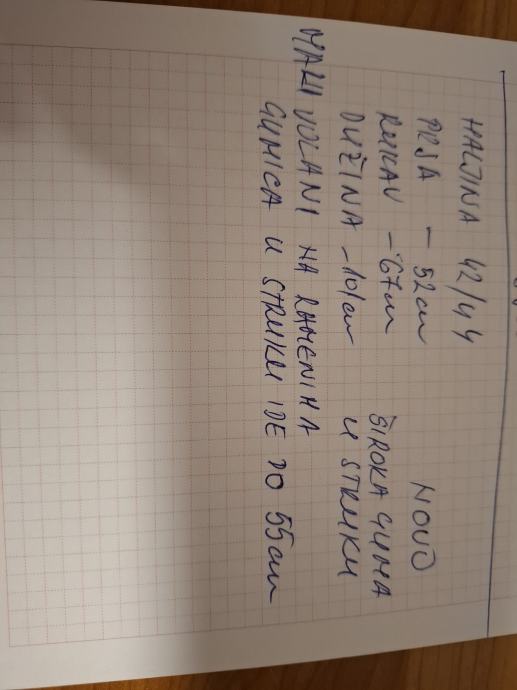 HALJINA 42/44
PRSA - 52cm NOVO
RUKAV - 67cm ŠIROKA GUMA
DUŽINA - 101cm U STRUKU
MALI VOLANI NA RAMENIMA
GUMICA U STRUKU IDE DO 55cm